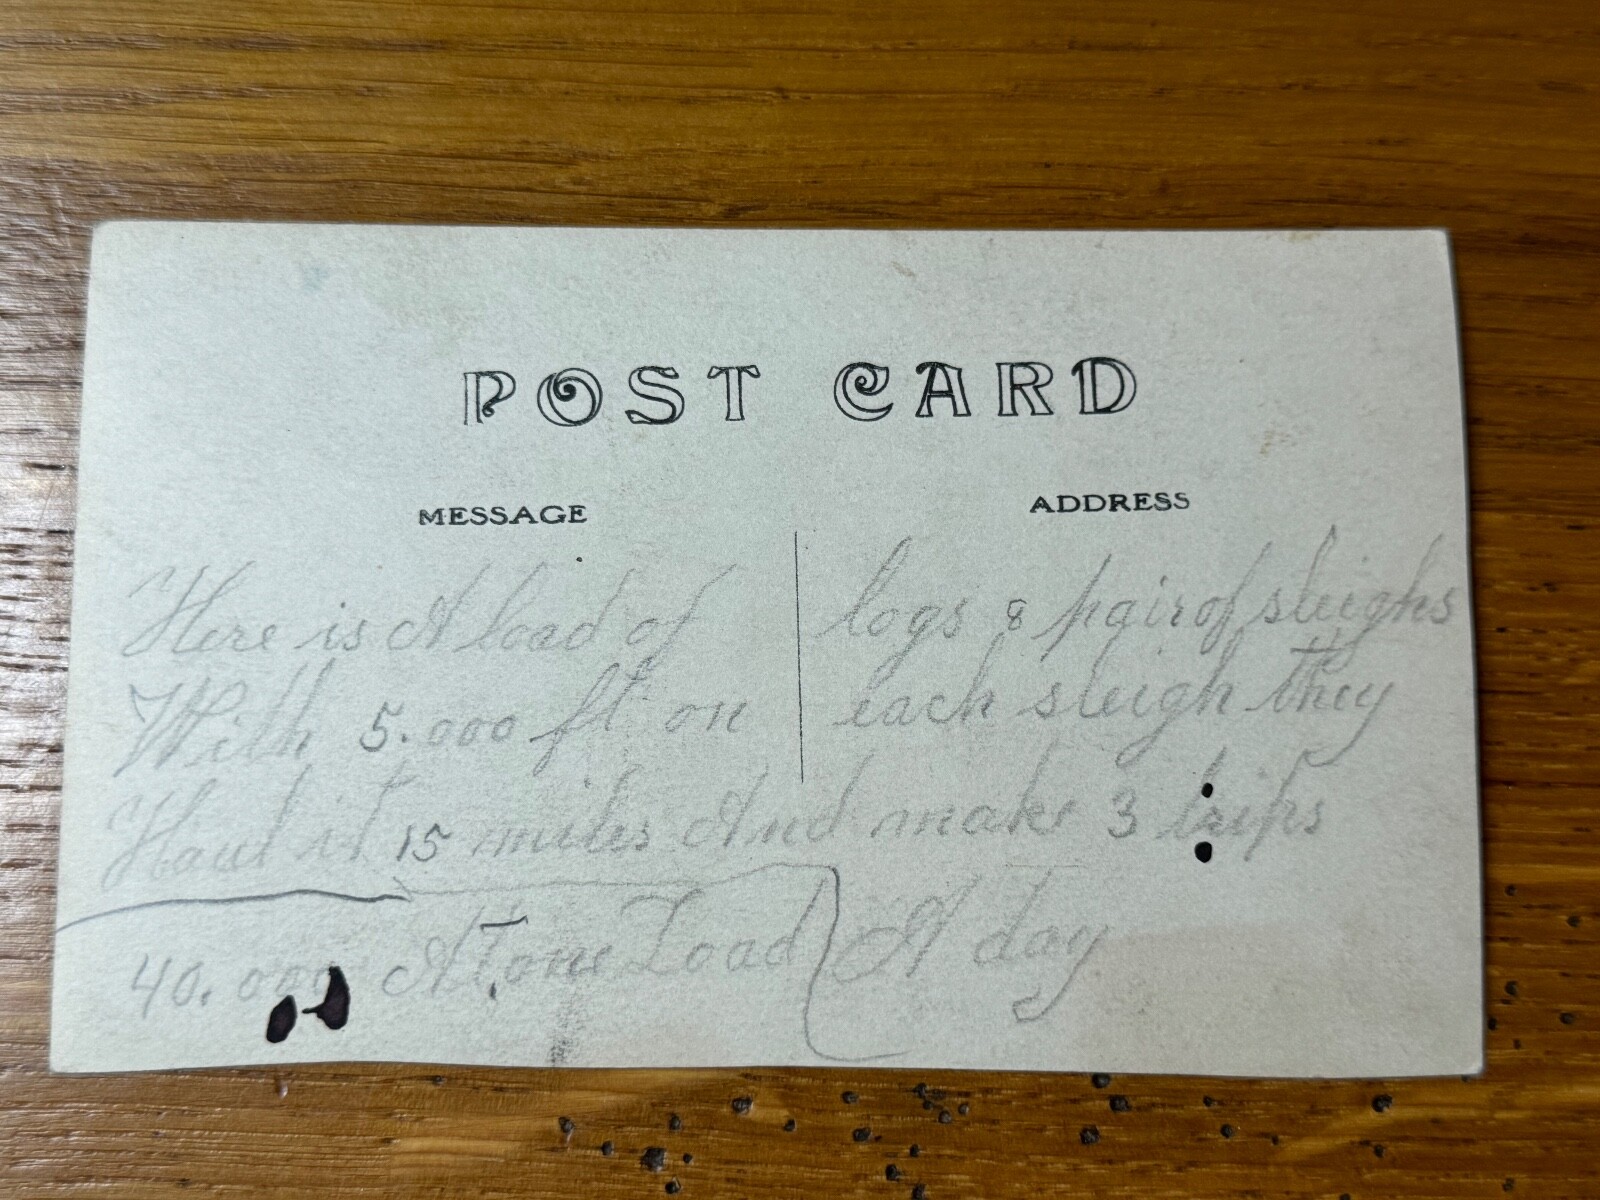 POST CARD
MESSAGE ADDRESS
Here is A load of logs 8 pair of sleighs
With 5.000 ft on each sleigh they
Haul it 15 miles And make 3 trips
A day
40.000 At one Load